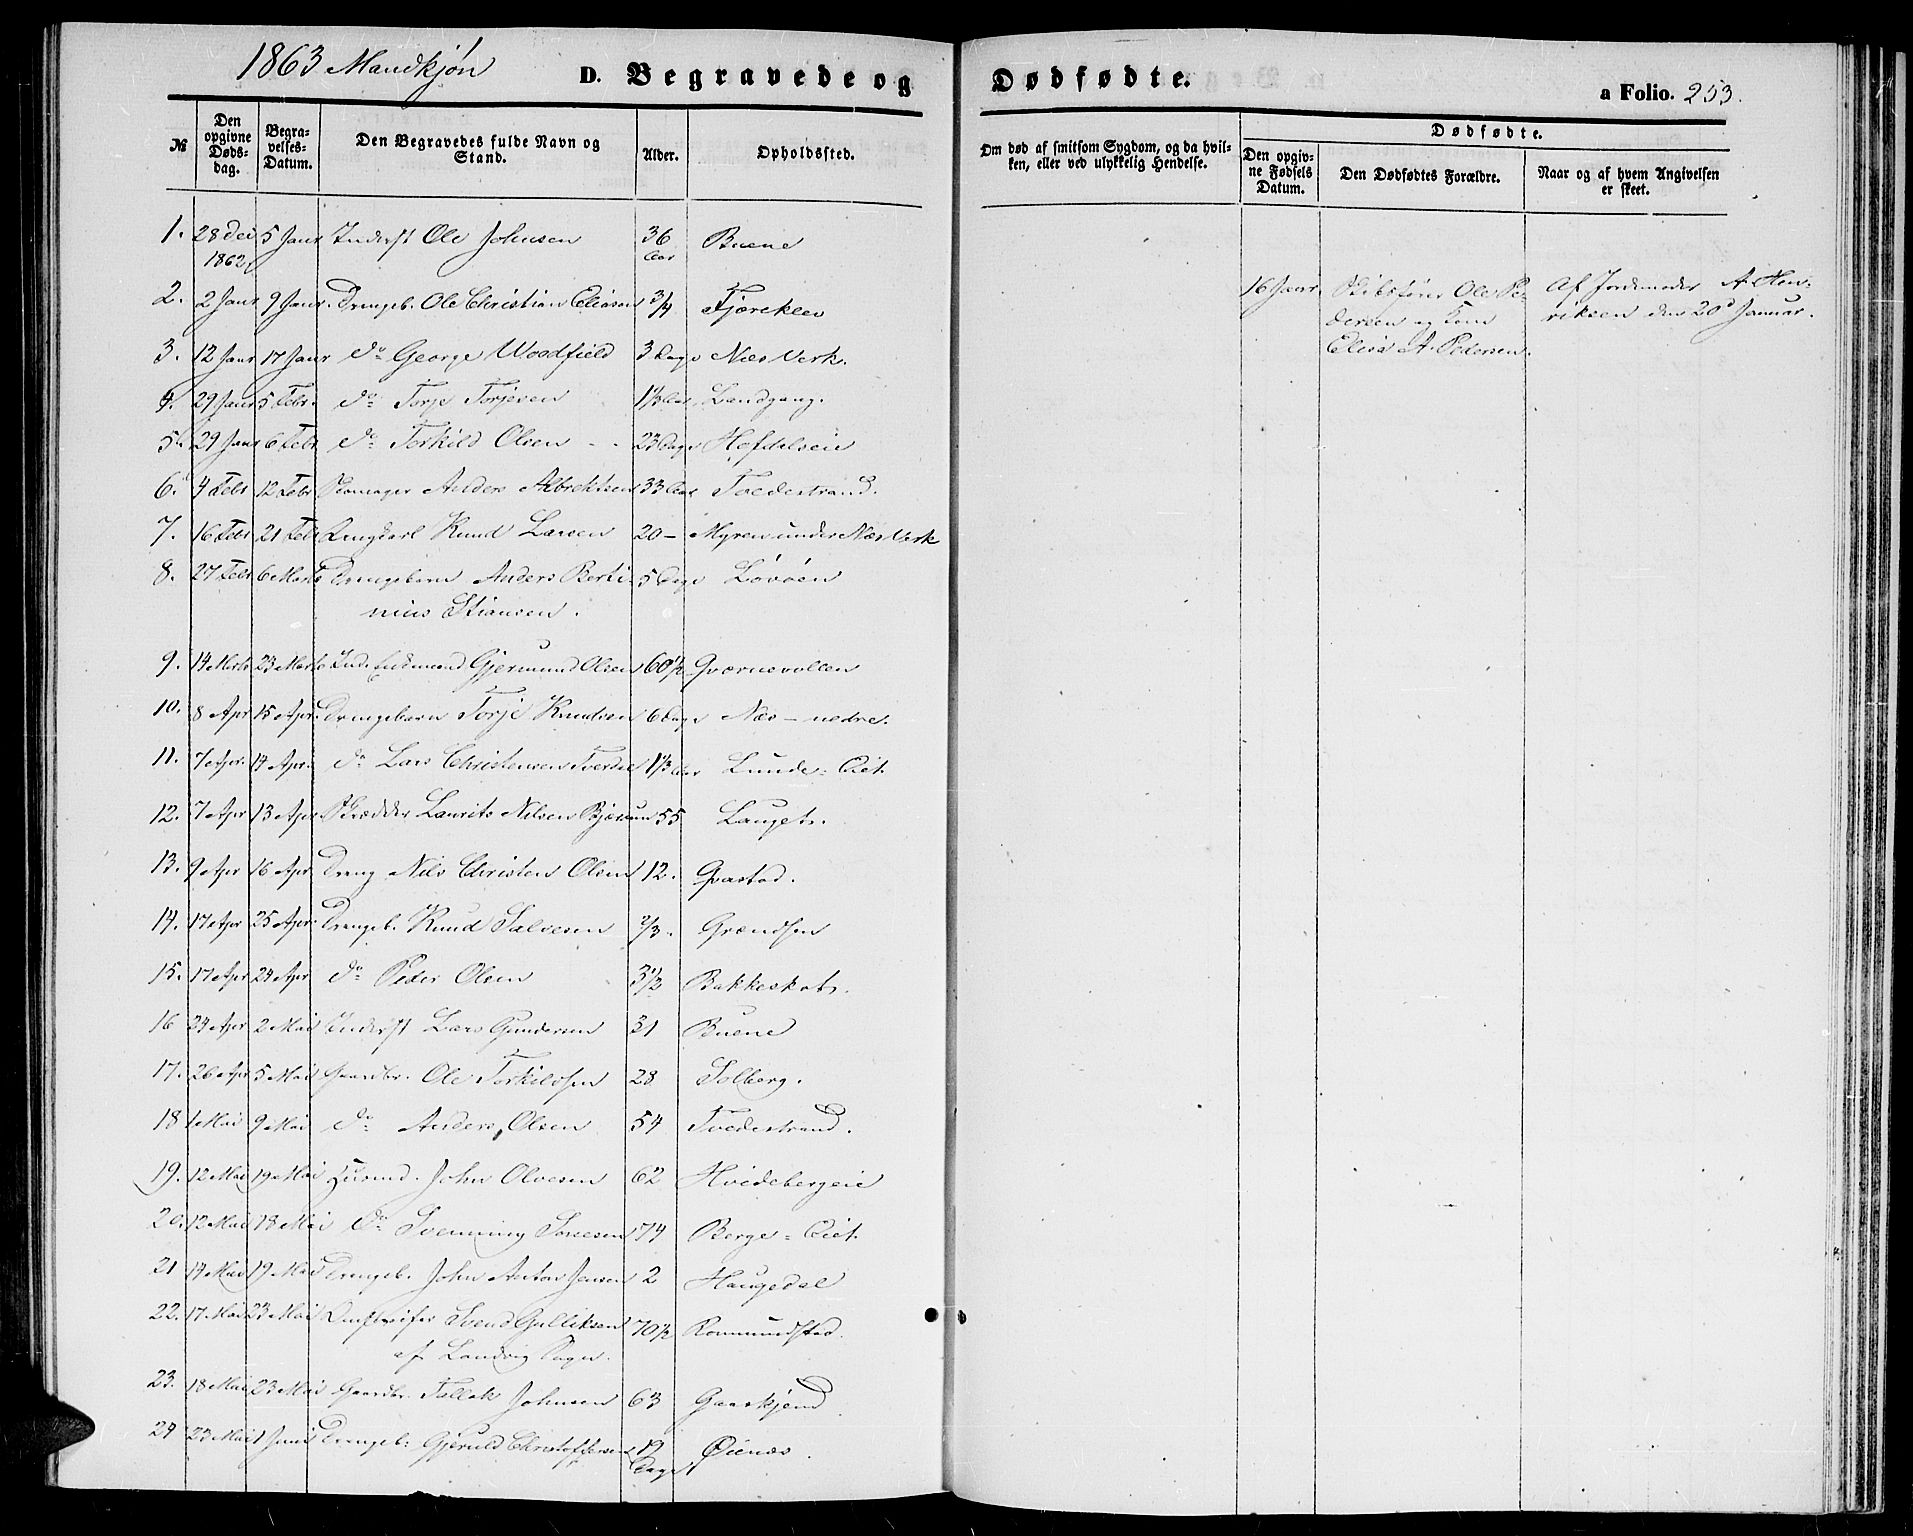 1863 Mandkjøn
D. Begravede og
Dødfødte.
a Folio. 253.
№
Den opgivne Døds-dag.
Begra-velses-Datum.
Den Begravedes fulde Navn og Stand.
Alder.
Opholdssted.
Om død af smitsom Sygdom, og da hvil-ken, eller ved ulykkelig Hendelse.
Dødfødte.
Den opgiv-ne Fødsels Datum.
Den Dødfødtes Forældre.
Naar og af hvem Angivelsen er skeet.
1. 28 Dec 1862 5 Janr Inderst Ole Johnsen 36 Aar Buene
2. 2 Janr 9 Janr. Drengeb. Ole Christian Eliasen 3/4 Fjæreklev
16 Janr. Skibsfører Ole Pe-
dersen og Kone
Elisa A. Pedersen.
Af Jordemoder A. Hen-
riksen den 20d Januar.
3. 12 Janr 17 Janr do George Woodfield 3 Dage Næs Verk.
4. 29 Janr 5 Febr. do Torje Torjesen 1 1/3 Aar Landgang.
5. 29 Janr 6 Febr do Torkild Olsen - - 23 Dage Hofdalseie
6. 4 Febr 12 Febr Skomager Anders Albrektsen 33 Aar Tvedestrand.
7. 16 Febr 21 Febr Ungkarl Knud Larsen 20 - Myren under Næs Verk
8. 27 Febr 6 Marts Drengebarn Anders Berti-
nius Stiansen. 5 Dage Lövöen
9. 14 Marts 23 Marts Gjermund Olsen 60 1/2 Qværnevollen
10. 8 Apr 15 Apr. Drengebarn Torje Knudsen 6 Dage Næs - nedre.
11. 7 Apr. 14 Apr. do Lars Christensen 1 1/3 Aar Lunde = Eiet.
12. 7 Apr 13 Apr Skrædder Laurits Nilsen 55 Lauget.
13. 9 Apr 16 Apr Dreng Nils Christen Olsen 12. Qvastad.
14. 17 Apr 25 Apr. Drengeb. Knud Salvesen 2/3. Grændsen
15. 17 Apr 24 Apr do Peder Olsen 3 1/2 Bakkeskot.
16 24 Apr 2 Mai Inderst Lars Gundersen 31 Buene
17. 26 Apr 5 Mai Gaardbr. Ole Torkildsen 28 Solberg.
18 1 Mai 9 Mai do Anders Olsen 54 Tvedestrand.
19. 12 Mai 19 Mai Husmd. John Olvesen 62 Hvidebergeie
20. 12 Mai 18 Mai do Svenning 74 Berge = Eiet.
21 14 Mai 19 Mai Drengeb. John Anton Jensen 2 Haugedal
22. 17 Mai 23 Mai Svend Gulliksen
af Landvig 70 1/2 Rommundstad.
23. 18 Mai 23 Mai Gaardbr. Tallak Johnsen 63 Gaaskjend
24 23 Mai 1 Juni Drengeb. Gjeruld Christoffersen 12 Dage Øienæs.